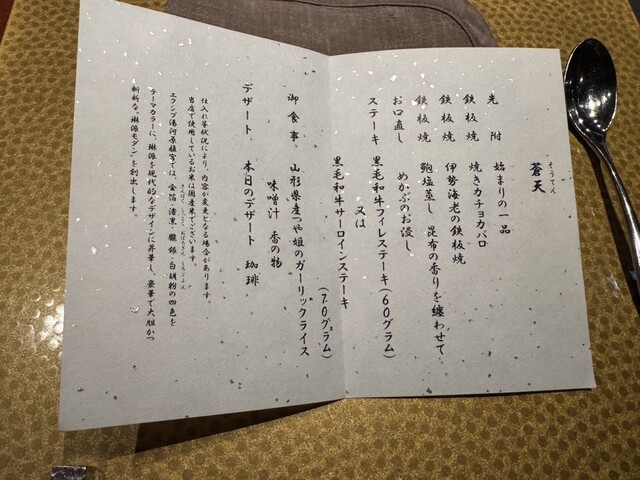 蒼天
そうてん
先附　始まりの一品
鉄板焼　焼きカチョカバロ
鉄板焼　伊勢海老の鉄板焼
鉄板焼　鞄塩蒸し　昆布の香りを纏わせて
お口直し　めかぶのお浸し
ステーキ　黒毛和牛フィレステーキ(60グラム)
又は
黒毛和牛サーロインステーキ
(70グラム)
御食事　山形県産つや姫のガーリックライス
味噌汁　香の物
デザート　本日のデザート　珈琲
仕入れ等状況により、内容が変更となる場合があります。
当店で使用しているお米は国産米でございます。
エクシブ湯河原離宮では、金箔・漆黒・朧銀・白胡粉の四色を
きんぱく しっこく おぼろぎん しろごふん
テーマカラーに、琳派を現代的なデザインに昇華し、豪華で大胆かつ
斬新な"琳派モダン"を創出します。